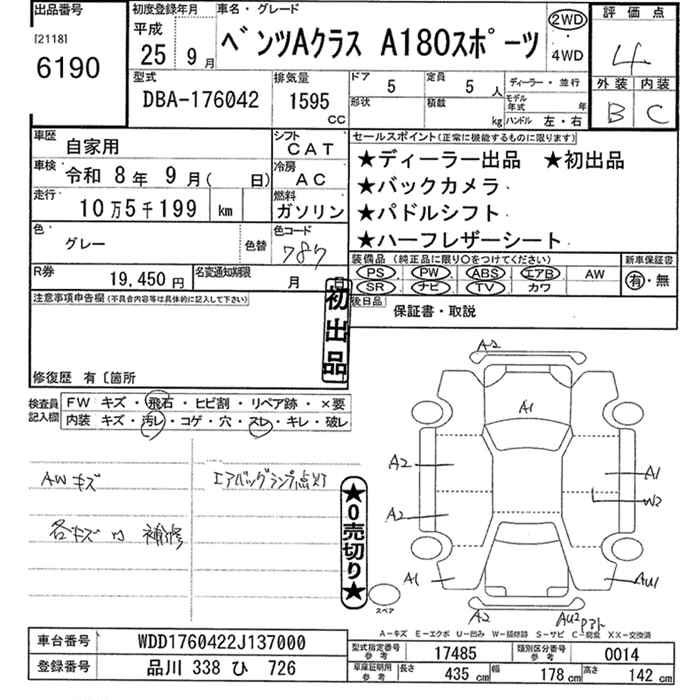 出品番号
[2118]
6190
初度登録年月
平成
25年 9月
車名・グレード
ベンツAクラス A180スポーツ
2WD
・
4WD
評価点
4
外装 内装
B C
型式
DBA-176042
排気量
1595
cc
ドア
5
定員
5 人
形状
積載
kg
ディーラー・並行
モデル年式 年
ハンドル 左・右
車歴
自家用
シフト
CAT
車検
令和 8年 9月( 日)
冷房
AC
走行
10万5千199 km
燃料
ガソリン
色
グレー
色替
色コード
787
R券
19,450円
名変通知期限
月 日
セールスポイント(正常に機能するものに限ります)
★ディーラー出品 ★初出品
★バックカメラ
★パドルシフト
★ハーフレザーシート
装備品 (純正品に限り○をつけてください)
PS PW ABS エアB AW
SR ナビ TV カワ
新車保証書
有・無
後日品
保証書・取説
注意事項申告欄(不具合内容等は具体的に記入して下さい)
初出品
修復歴 有〔箇所
検査員
記入欄
FW キズ・飛石・ヒビ割・リペア跡・×要
内装 キズ・汚レ・コゲ・穴・スレ・キレ・破レ
AWキズ
エアバッグランプ点灯
各キズ 補修
★0売切り★
A2
A1
A2
A1
W2
A2
A1
AU1
A2
AU2
スペア
A-キズ E-エクボ U-凹み W-補修跡 S-サビ C-腐食 XX-交換済
車台番号
WDD1760422J137000
登録番号
品川 338 ひ 726
型式指定番号
参考
17485
類別区分番号
参考
0014
車庫証明用
参考
長さ
435 cm
幅
178 cm
高さ
142 cm